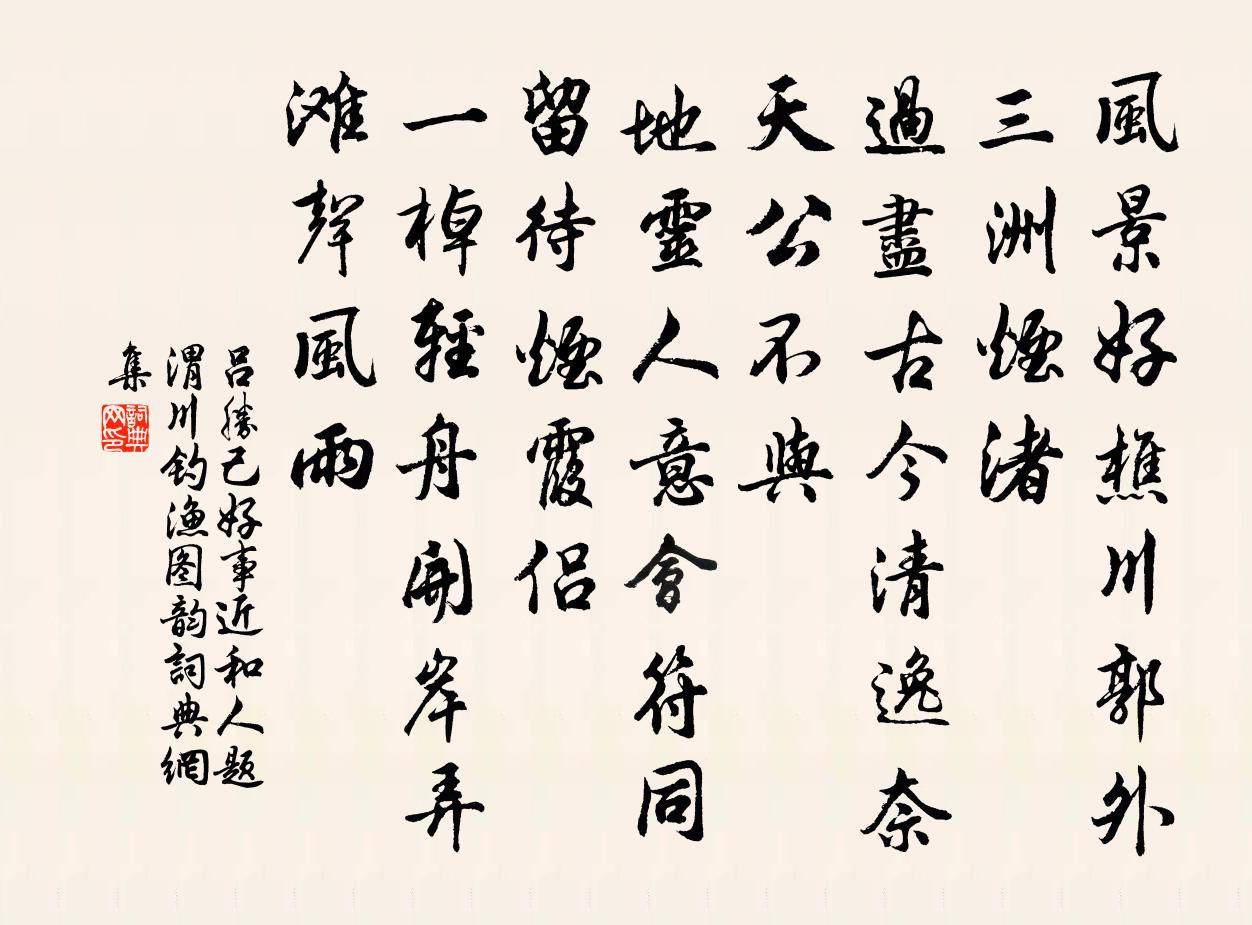 風景好樵川郭外
三洲煙渚
過盡古今清逸奈
天公不與
地靈人意會符同
留待煙霞侶
一棹輕舟開岸弄
滩聲風雨
呂勝己好事近和人题
渭川钓漁图韵詞典網
集
詞典
网印